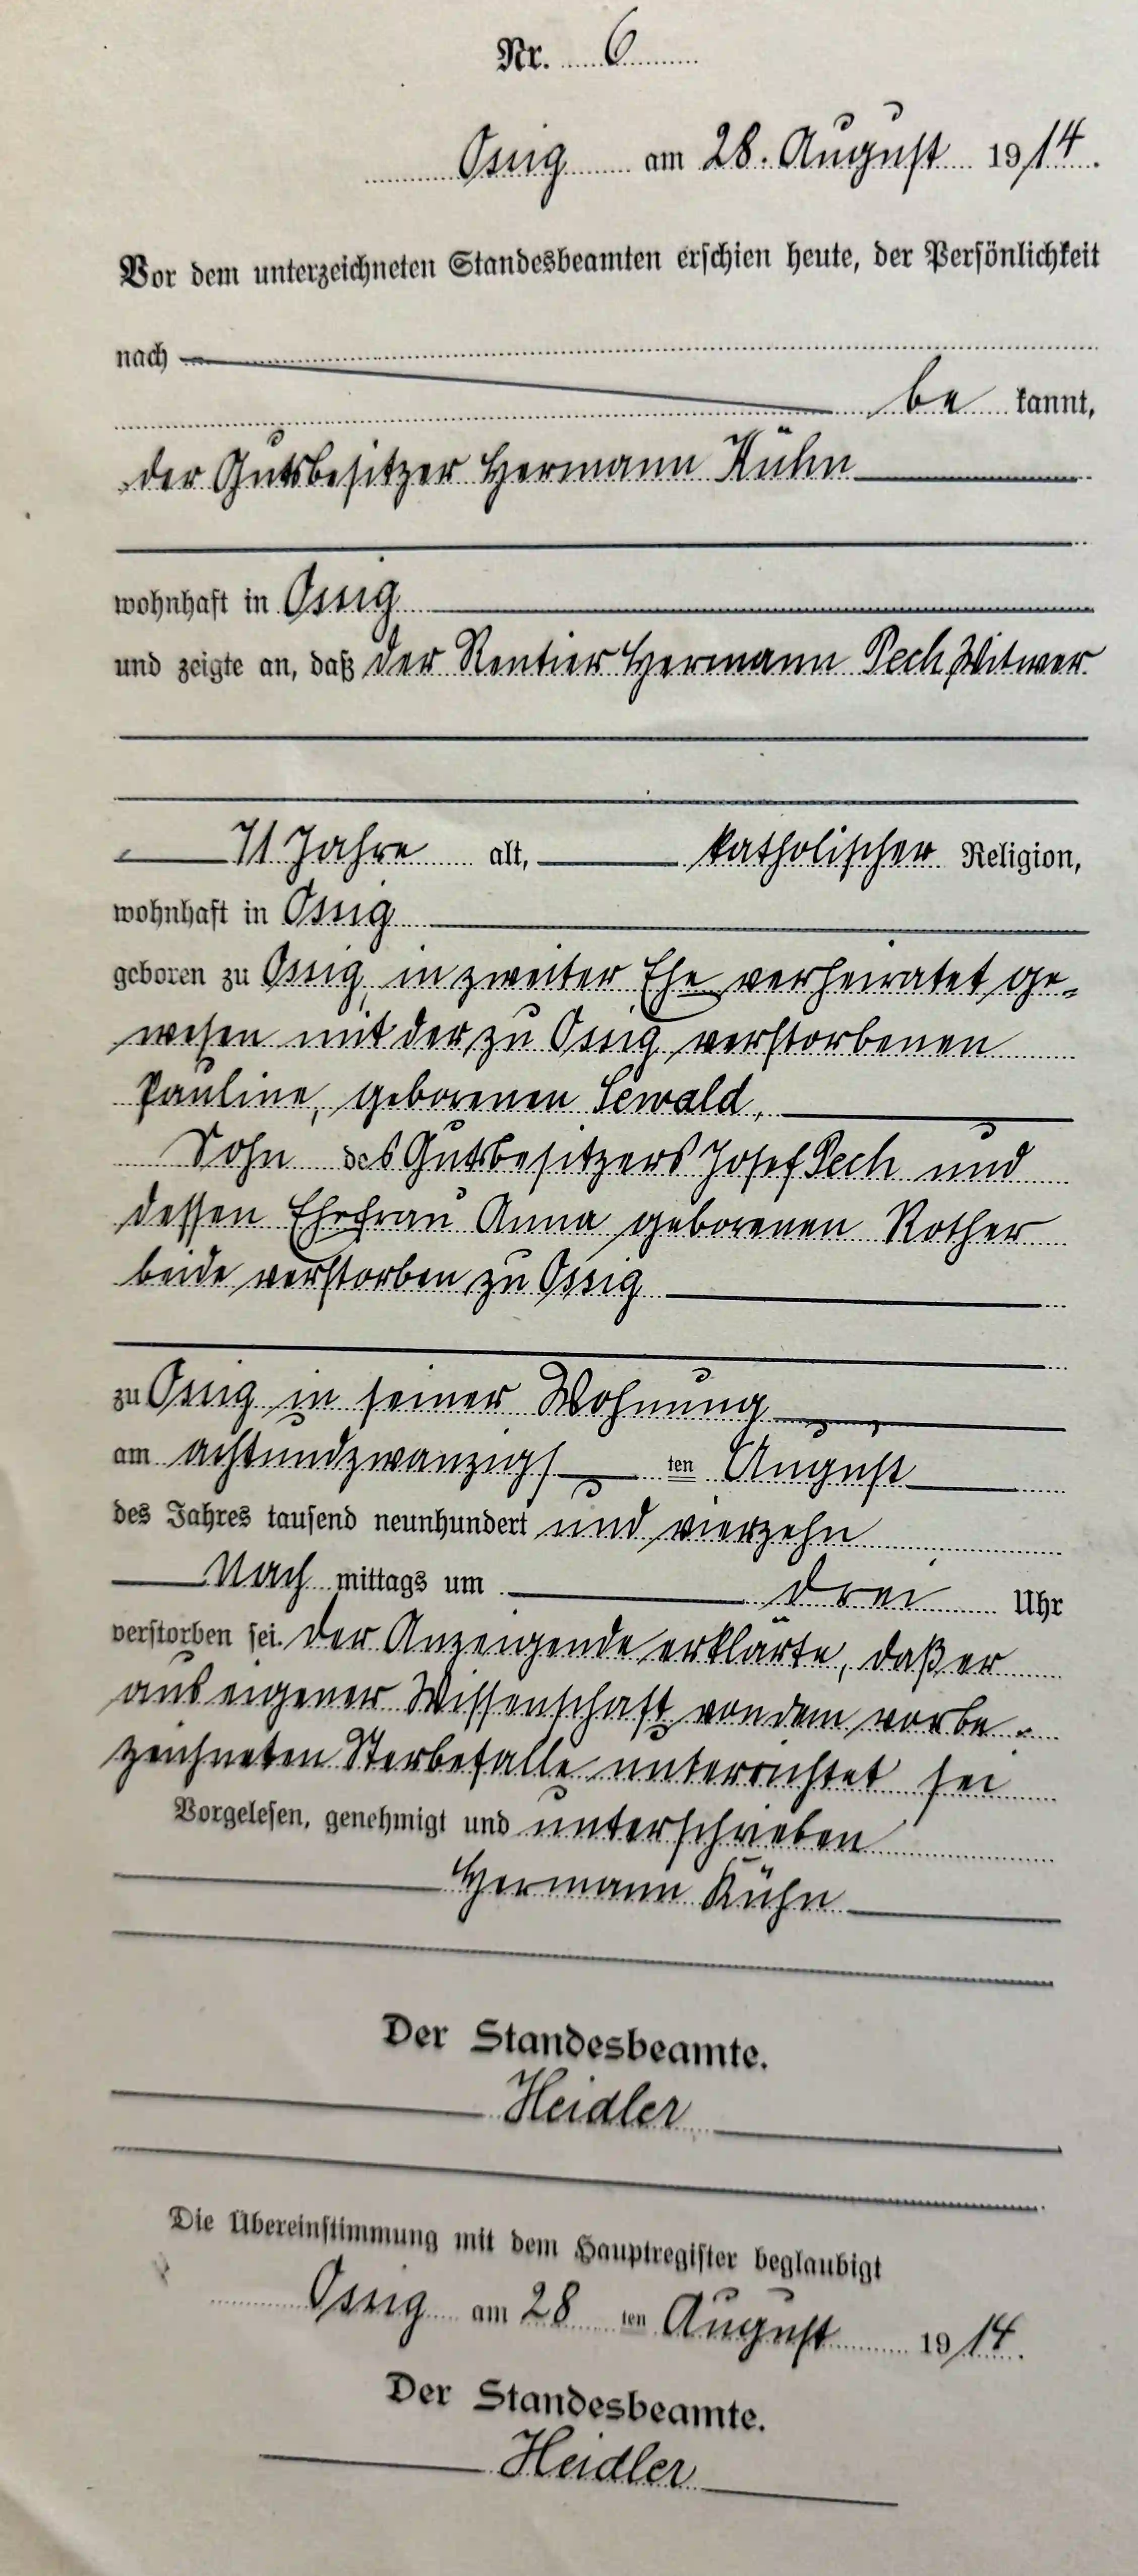 Nr. 6
Ossig am 28. August 1914.
Vor dem unterzeichneten Standesbeamten erschien heute, der Persönlichkeit
nach
be kannt,
der Gutsbesitzer Hermann Kühn
wohnhaft in Ossig
und zeigte an, daß der Rentier Hermann Pech, Witwer
71 Jahre alt, katholischer Religion,
wohnhaft in Ossig
geboren zu Ossig, in zweiter Ehe verheiratet ge-
wesen mit der zu Ossig verstorbenen
Pauline, geborenen Sewald,
Sohn des Gutsbesitzers Josef Pech und
dessen Ehefrau Anna geborenen Rother
beide verstorben zu Ossig
zu Ossig in seiner Wohnung
am achtundzwanzigs ten August
des Jahres tausend neunhundert und vierzehn
Nach mittags um drei Uhr
verstorben sei. Der Anzeigende erklärte, daß er
aus eigener Wissenschaft von dem vorbe-
zeichneten Sterbefalle unterrichtet sei
Vorgelesen, genehmigt und unterschrieben
Hermann Kühn
Der Standesbeamte.
Heidler
Die Übereinstimmung mit dem Hauptregister beglaubigt
Ossig am 28 ten August 1914.
Der Standesbeamte.
Heidler